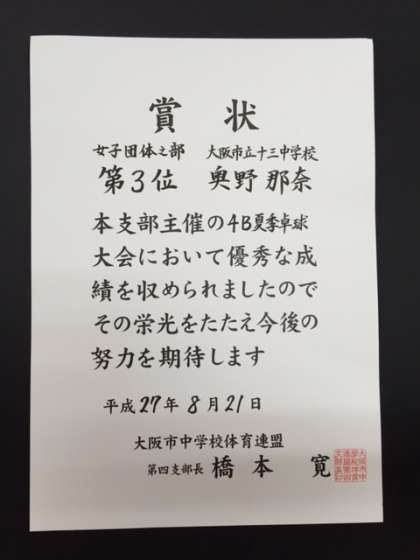 賞状
女子団体之部 大阪市立十三中学校
第3位 奥野 那奈
本支部主催の4B夏季卓球
大会において優秀な成
績を収められましたので
その栄光をたたえ今後の
努力を期待します
平成27年8月21日
大阪市中学校体育連盟
第四支部長 橋本 寛